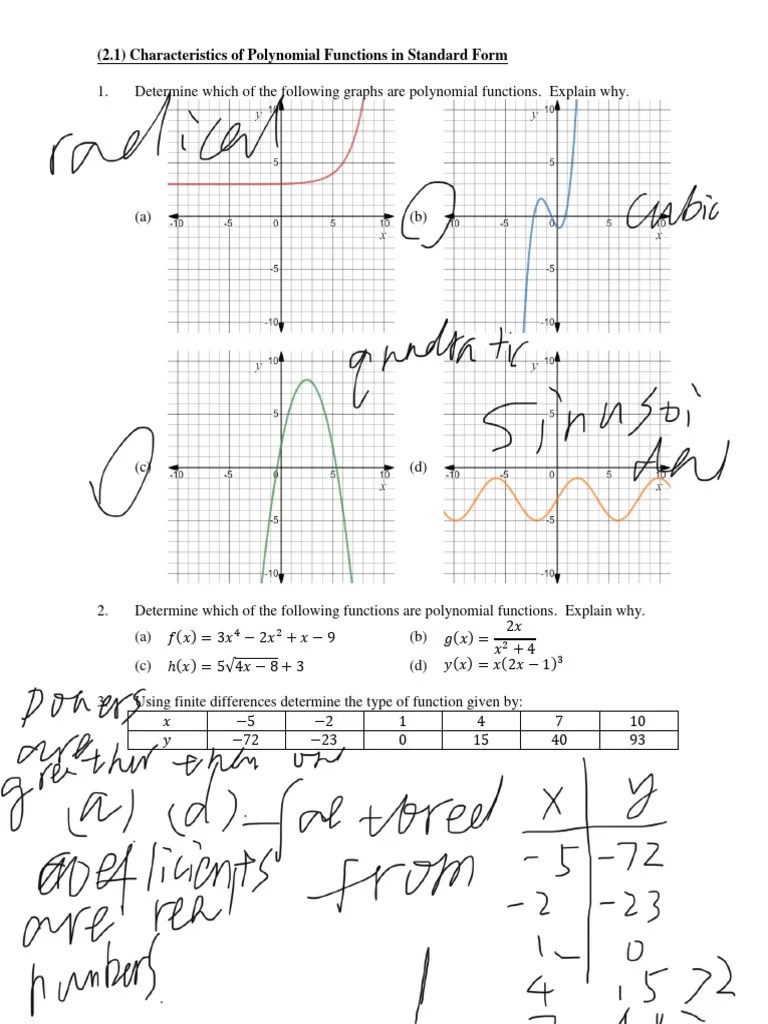 (2.1) Characteristics of Polynomial Functions in Standard Form
1. Determine which of the following graphs are polynomial functions. Explain why.
radical
y 10
5
(a) -10 -5 0 5 10
x
-5
-10
y 10
5
(b) -10 -5 0 5 10
x
-5
-10
cubic
y 10
5
(c) -10 -5 0 5 10
x
-5
-10
quadratic
y 10
5
(d) -10 -5 0 5 10
x
-5
-10
sinusoi
dal
2. Determine which of the following functions are polynomial functions. Explain why.
(a) f(x) = 3x⁴ − 2x² + x − 9 (b) g(x) = 2x/(x² + 4)
(c) h(x) = 5√(4x − 8) + 3 (d) y(x) = x(2x − 1)³
Using finite differences determine the type of function given by:
x −5 −2 1 4 7 10
y −72 −23 0 15 40 93
powers
are
greather than one
(a) (d) factored
from
coefficients
are real
numbers.
x y
-5 -72
-2 -23
1 0
4 15 72
7